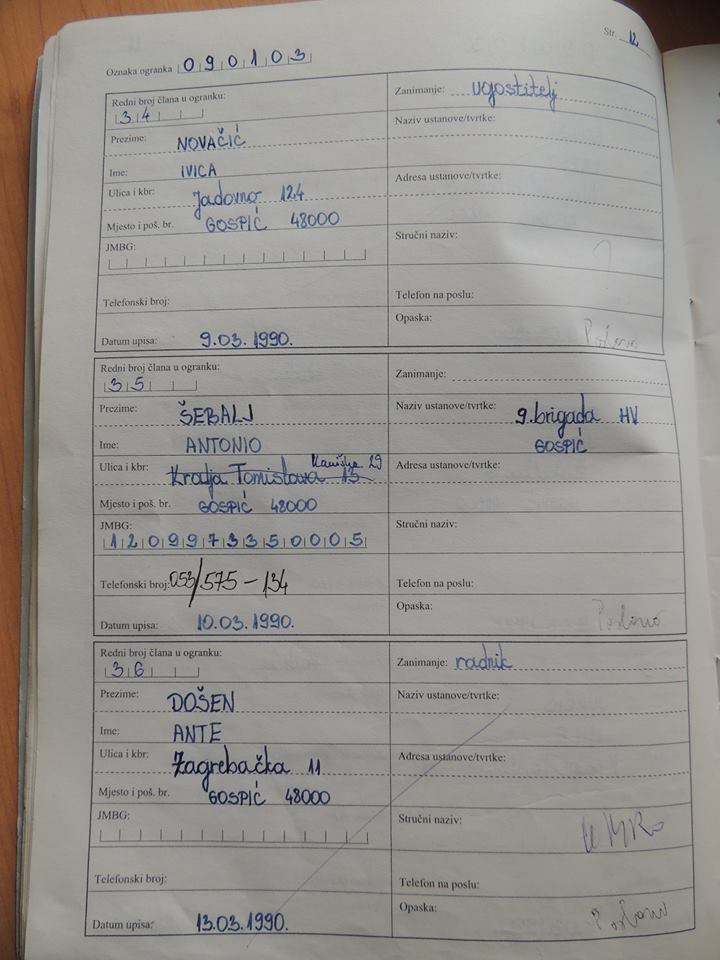 Str. 12
Oznaka ogranka 090103
Redni broj člana u ogranku:
34
Zanimanje: ugostitelj
Prezime: NOVAČIĆ
Naziv ustanove/tvrtke:
Ime: IVICA
Ulica i kbr: Jadovno 124
Adresa ustanove/tvrtke:
Mjesto i poš. br. GOSPIĆ 48000
JMBG:
Stručni naziv:
Telefonski broj:
Telefon na poslu:
Datum upisa: 9.03.1990.
Opaska: Poslano
Redni broj člana u ogranku:
35
Zanimanje:
Prezime: ŠEBALJ
Naziv ustanove/tvrtke: 9. brigada HV
GOSPIĆ
Ime: ANTONIO
Ulica i kbr: Kralja Tomislava 13 29
Adresa ustanove/tvrtke:
Mjesto i poš. br. GOSPIĆ 48000
JMBG:
1209973350005
Stručni naziv:
Telefonski broj: 053/575-134
Telefon na poslu:
Datum upisa: 10.03.1990.
Opaska: Poslano
Redni broj člana u ogranku:
36
Zanimanje: radnik
Prezime: DOŠEN
Naziv ustanove/tvrtke:
Ime: ANTE
Ulica i kbr: Zagrebačka 11
Adresa ustanove/tvrtke:
Mjesto i poš. br. GOSPIĆ 48000
JMBG:
Stručni naziv:
Telefonski broj:
Telefon na poslu:
Datum upisa: 13.03.1990.
Opaska: Poslano